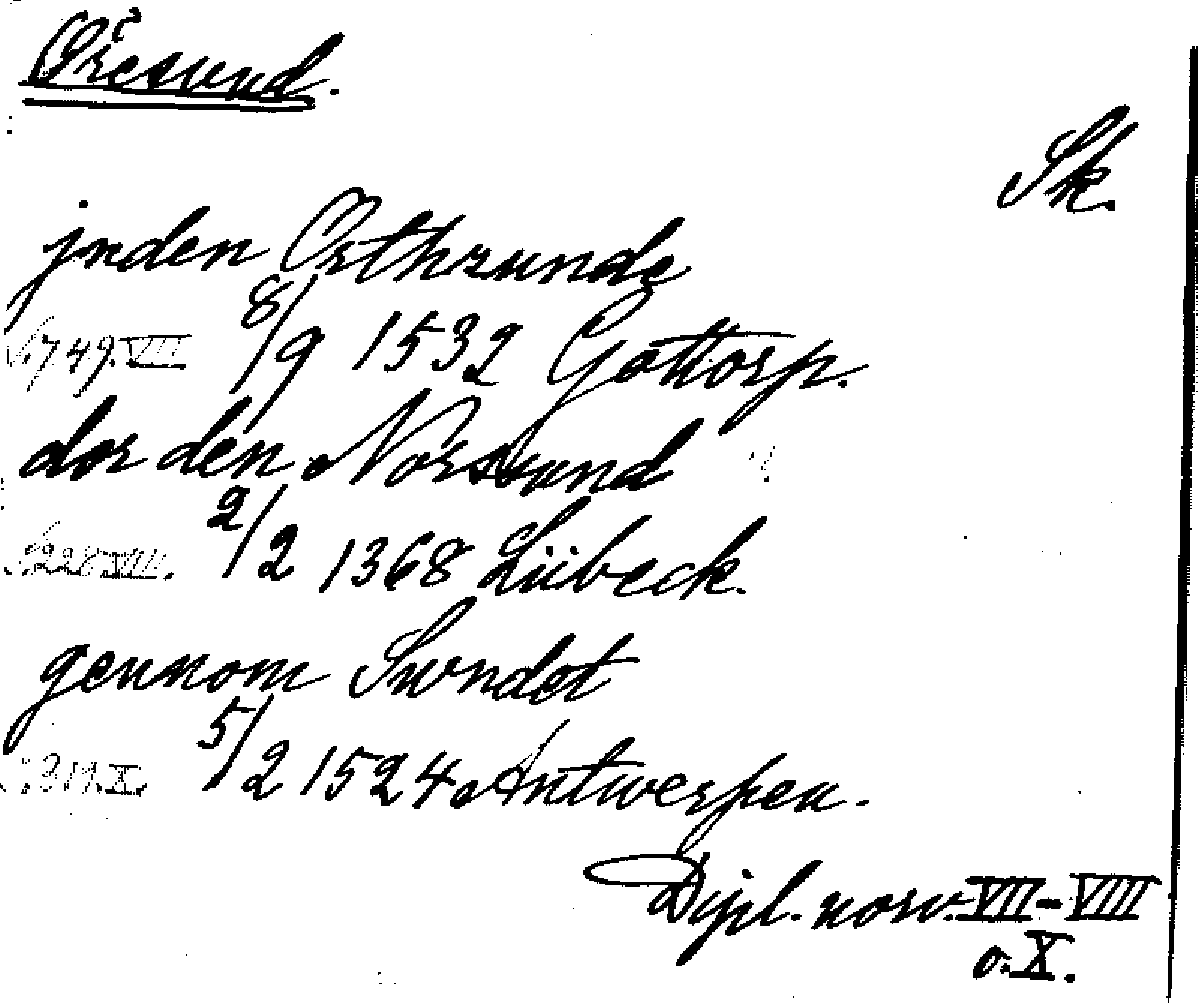 Öresund.
Sk.
jnden Örthzunde
N. 749. VII 8/9 1532 Gottorp.
dor den Norssund
S. 228 VIII. 2/2 1368 Lübeck.
gennom Swndet
S. 319. X. 5/2 1524 Antwerpen.
Dipl. norv. VII-VIII
o. X.